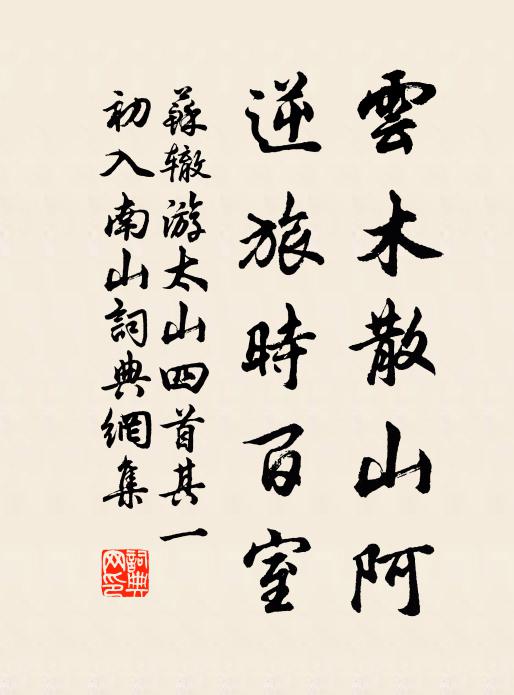 雲木散山阿
逆旅時百室
蘇辙游太山四首其一
初入南山詞典網集
詞典网印